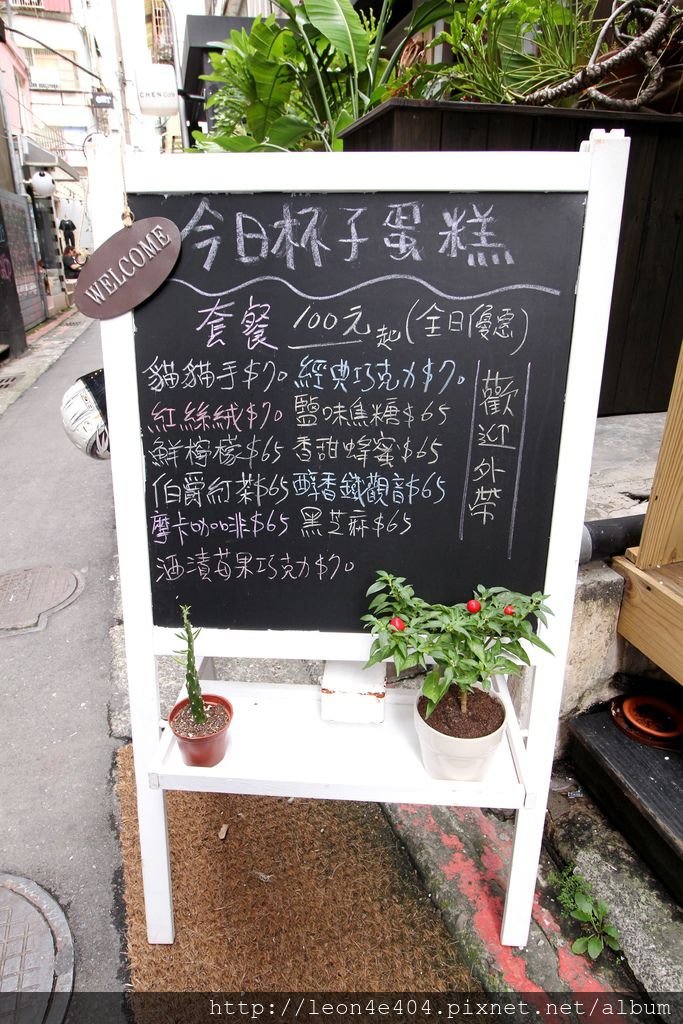 CHENGB
WELCOME
今日杯子蛋糕
套餐 100元起(全日優惠)
貓貓手$70 經典巧克力$70
紅絲絨$70 鹽味焦糖$65
鮮檸檬$65 香甜蜂蜜$65
伯爵紅茶$65 醇香鐵觀音$65
摩卡咖啡$65 黑芝麻$65
酒漬莓果巧克力$70
歡迎外帶
http://leon4e404.pixnet.net/album